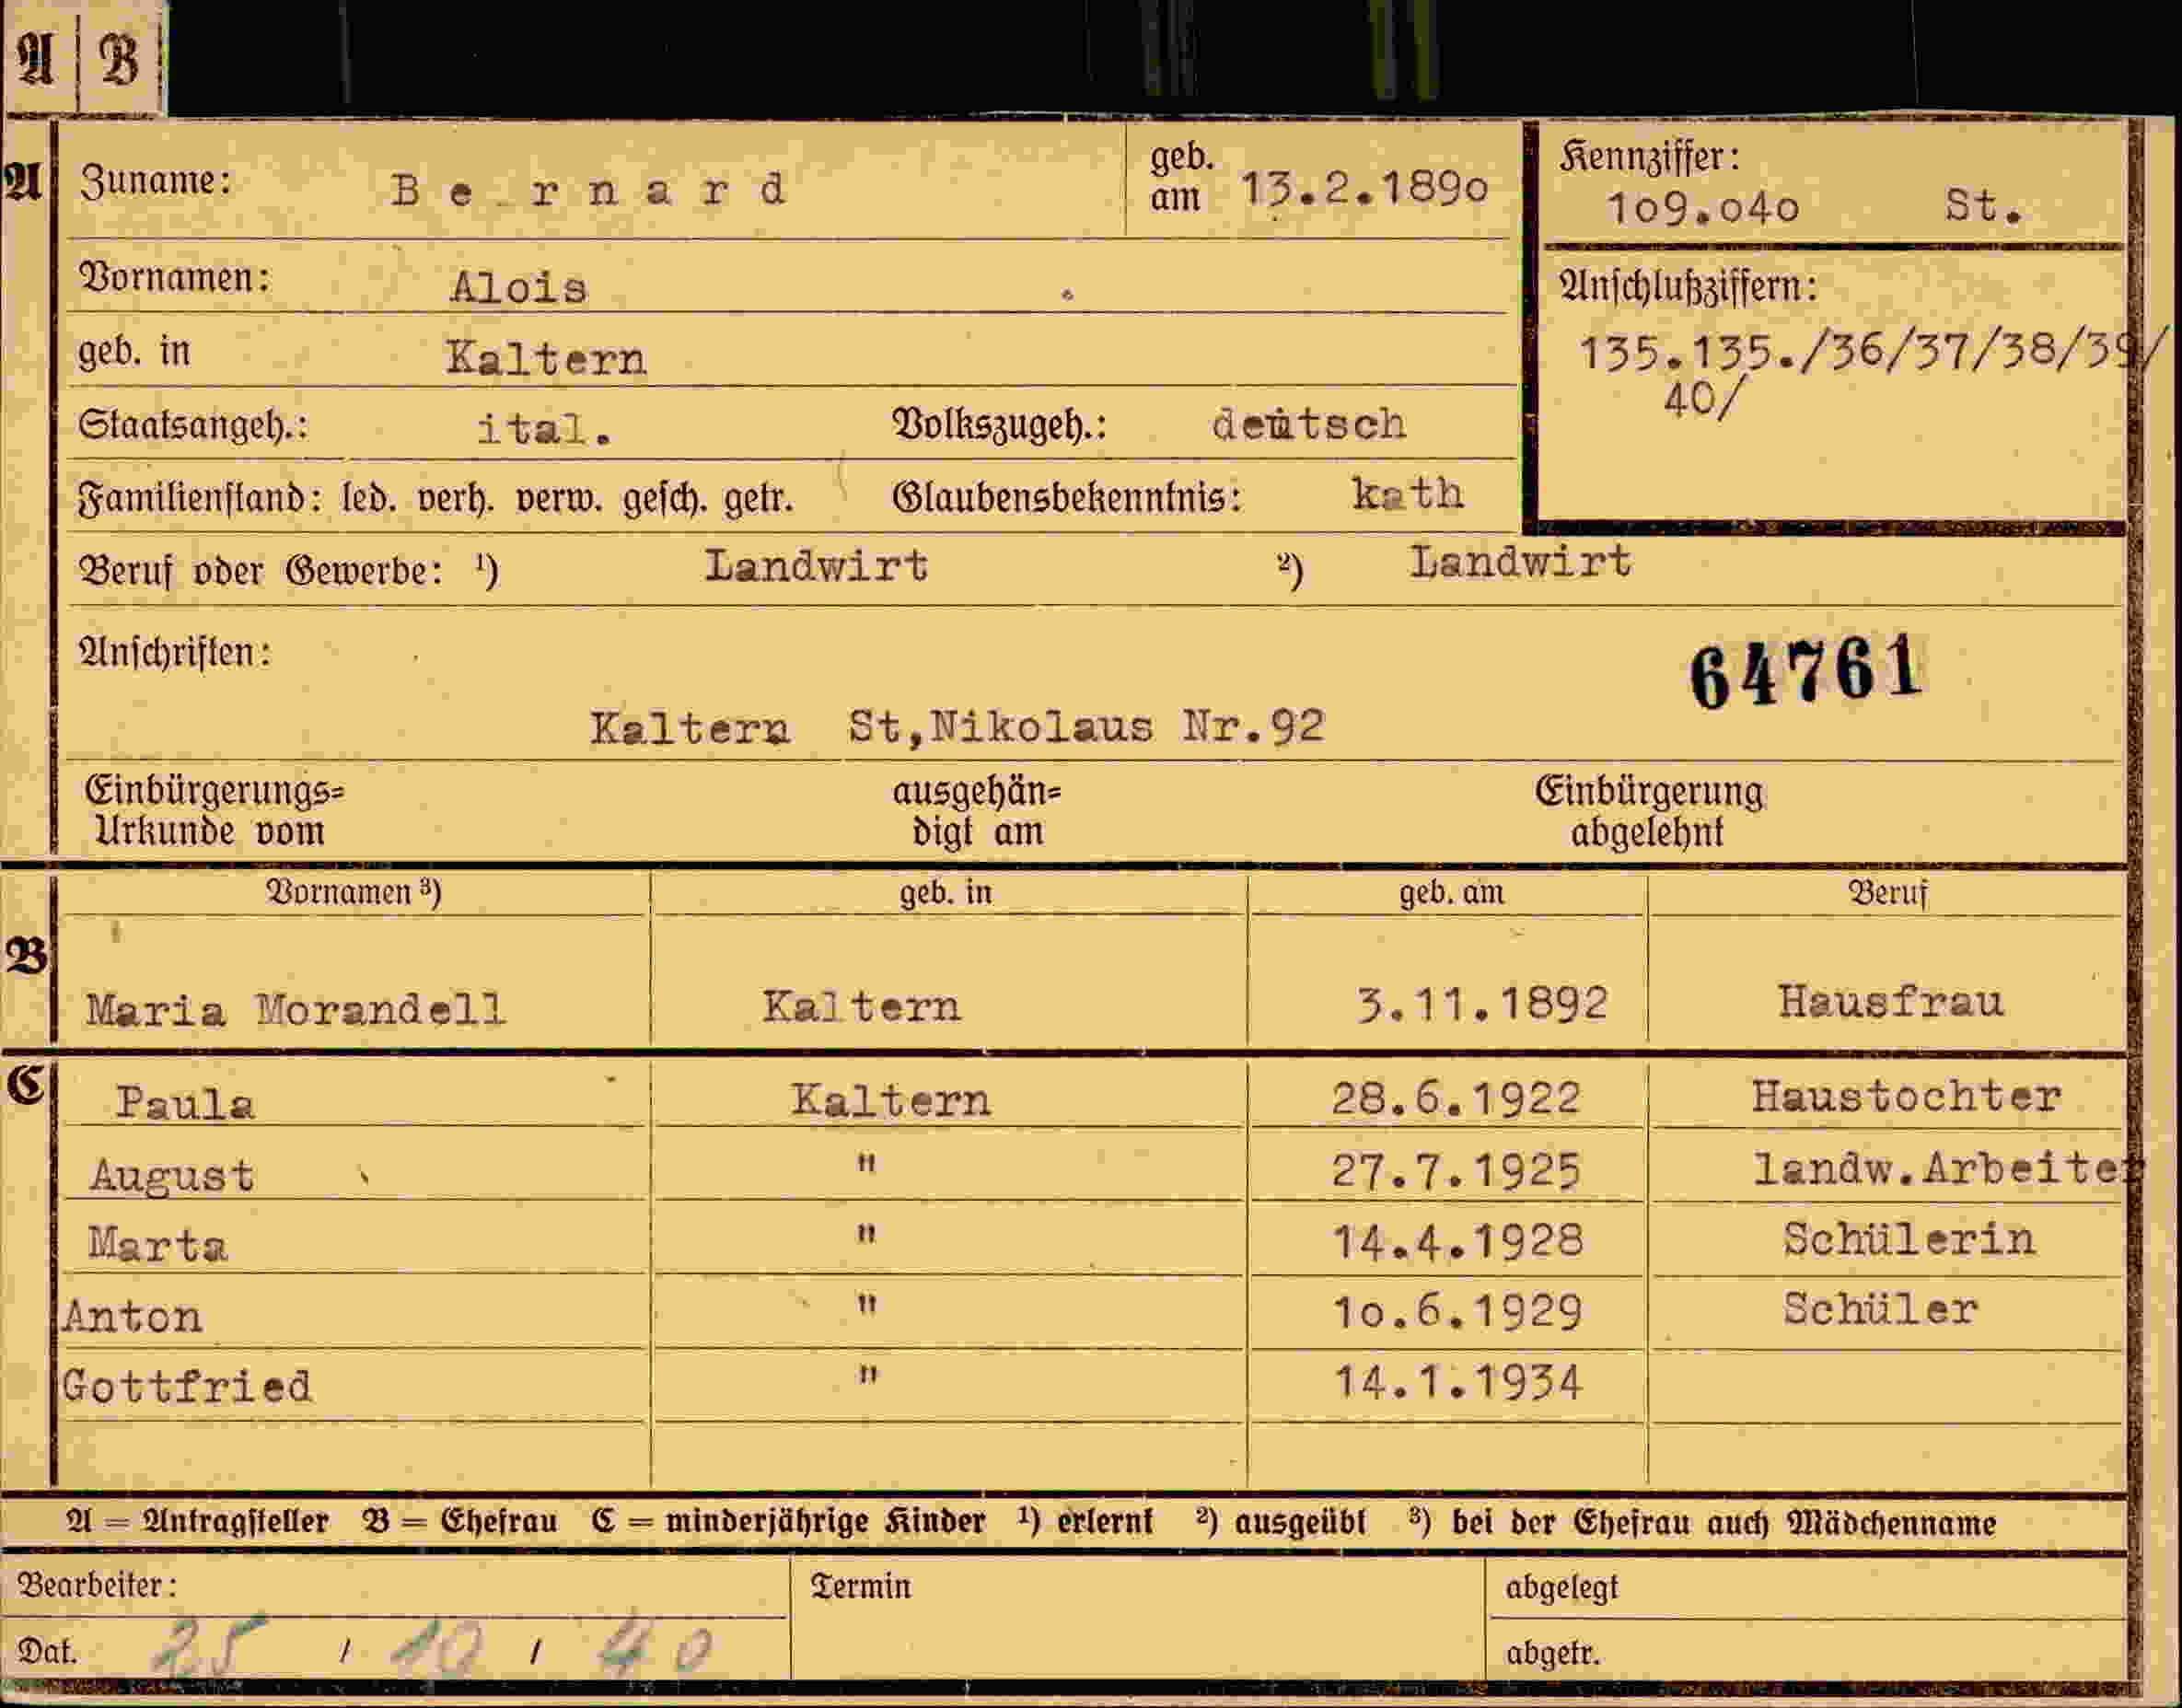 A B
A Zuname: Bernard geb. am 13.2.1890 Kennziffer: 109.040 St.
Vornamen: Alois
Anschlußziffern:
geb. in Kaltern 135.135./36/37/38/39/
40/
Staatsangeh.: ital. Volkszugeh.: deutsch
Familienstand: led. verh. verw. gesch. getr. Glaubensbekenntnis: kath
Beruf oder Gewerbe: ¹) Landwirt ²) Landwirt
Anschriften: 64761
Kaltern St,Nikolaus Nr.92
Einbürgerungs= ausgehän= Einbürgerung
Urkunde vom digt am abgelehnt
Vornamen ³) geb. in geb. am Beruf
B
Maria Morandell Kaltern 3.11.1892 Hausfrau
C Paula Kaltern 28.6.1922 Haustochter
August " 27.7.1925 landw.Arbeiter
Marta " 14.4.1928 Schülerin
Anton " 10.6.1929 Schüler
Gottfried " 14.1.1934
A = Antragsteller B = Ehefrau C = minderjährige Kinder ¹) erlernt ²) ausgeübt ³) bei der Ehefrau auch Mädchenname
Bearbeiter: Termin abgelegt
Dat. 25 / 10 / 40 abgetr.